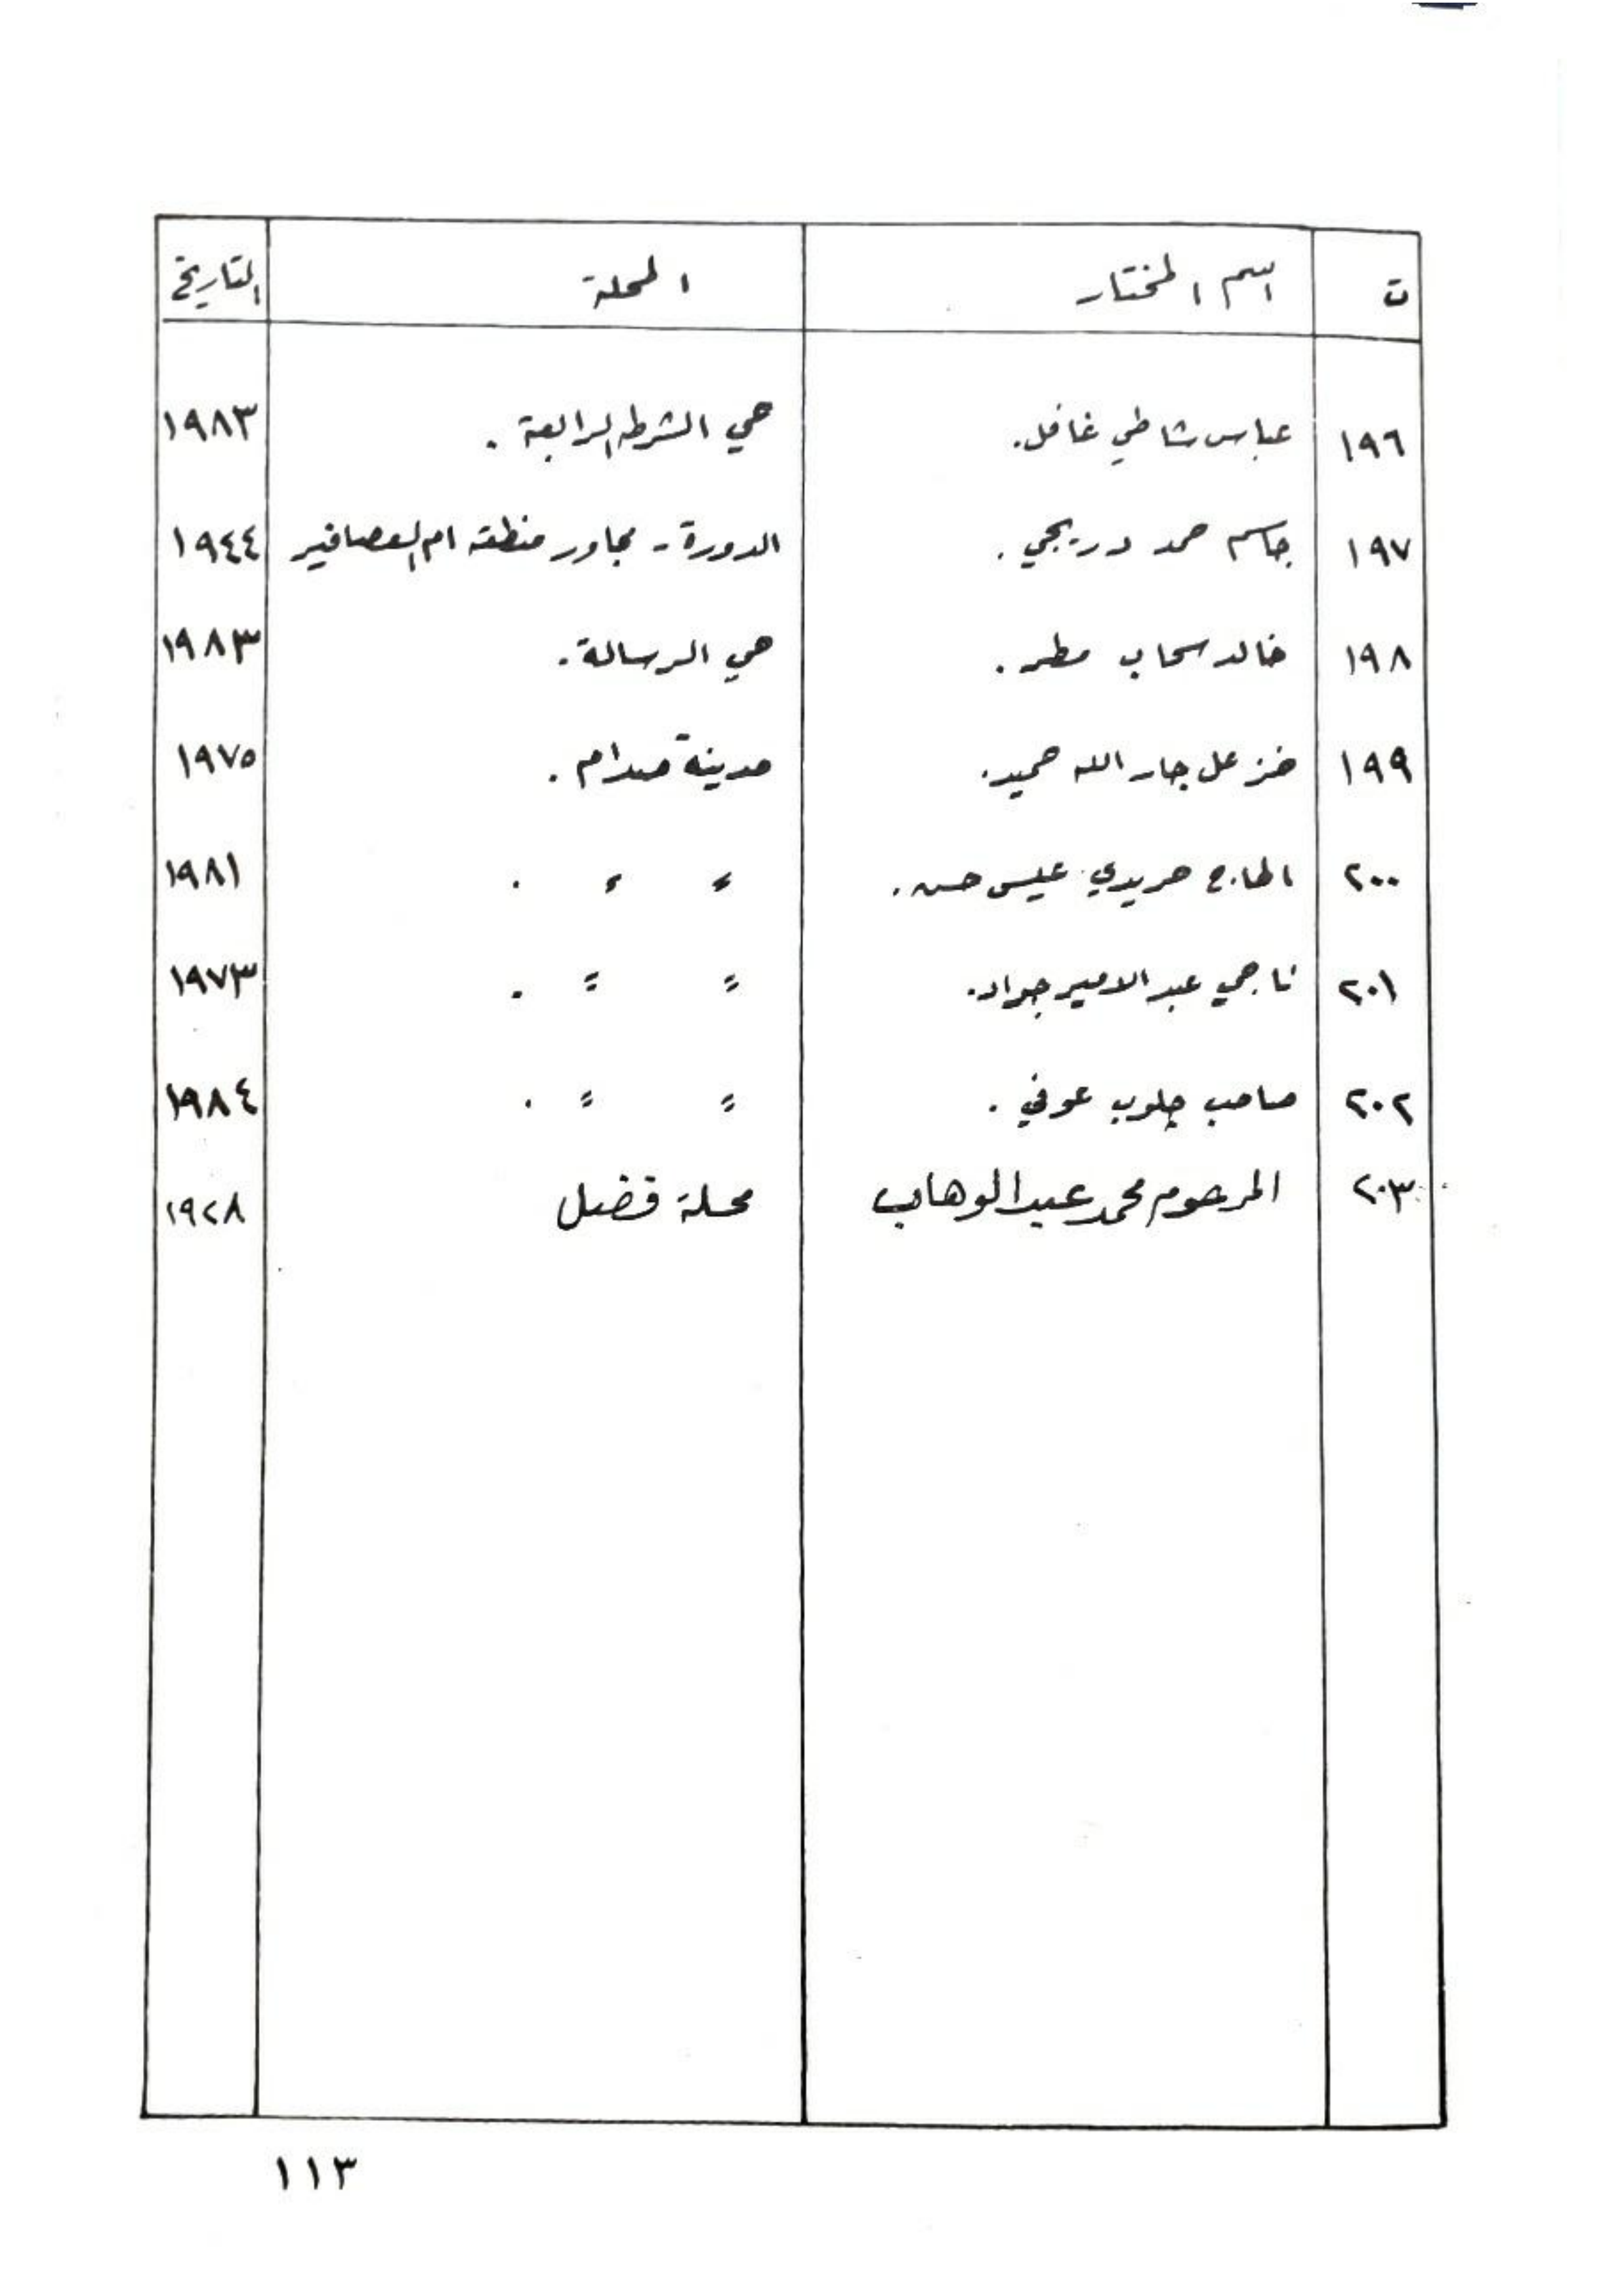 ت اسم المختار المحلة التاريخ
١٩٦ عباس شاطي غافل. حي الشرطه الرابعة . ١٩٨٣
١٩٧ جاسم حمد دريجي . الدورة - مجاور منطقه ام العصافير ١٩٤٤
١٩٨ خالد سحاب مطر . حي الرسالة . ١٩٨٣
١٩٩ خزعل جار الله حميد. مدينة صدام . ١٩٧٥
٢٠٠ الحاج حريدي عليس حسن . 〃 〃 . ١٩٨١
٢٠١ ناجي عبد الامير جواد. 〃 〃 . ١٩٧٣
٢٠٢ صاحب چلوب عوفي . 〃 〃 . ١٩٨٤
٢٠٣ المرحوم محمد عبد الوهاب محلة فضل ١٩٢٨
١١٣